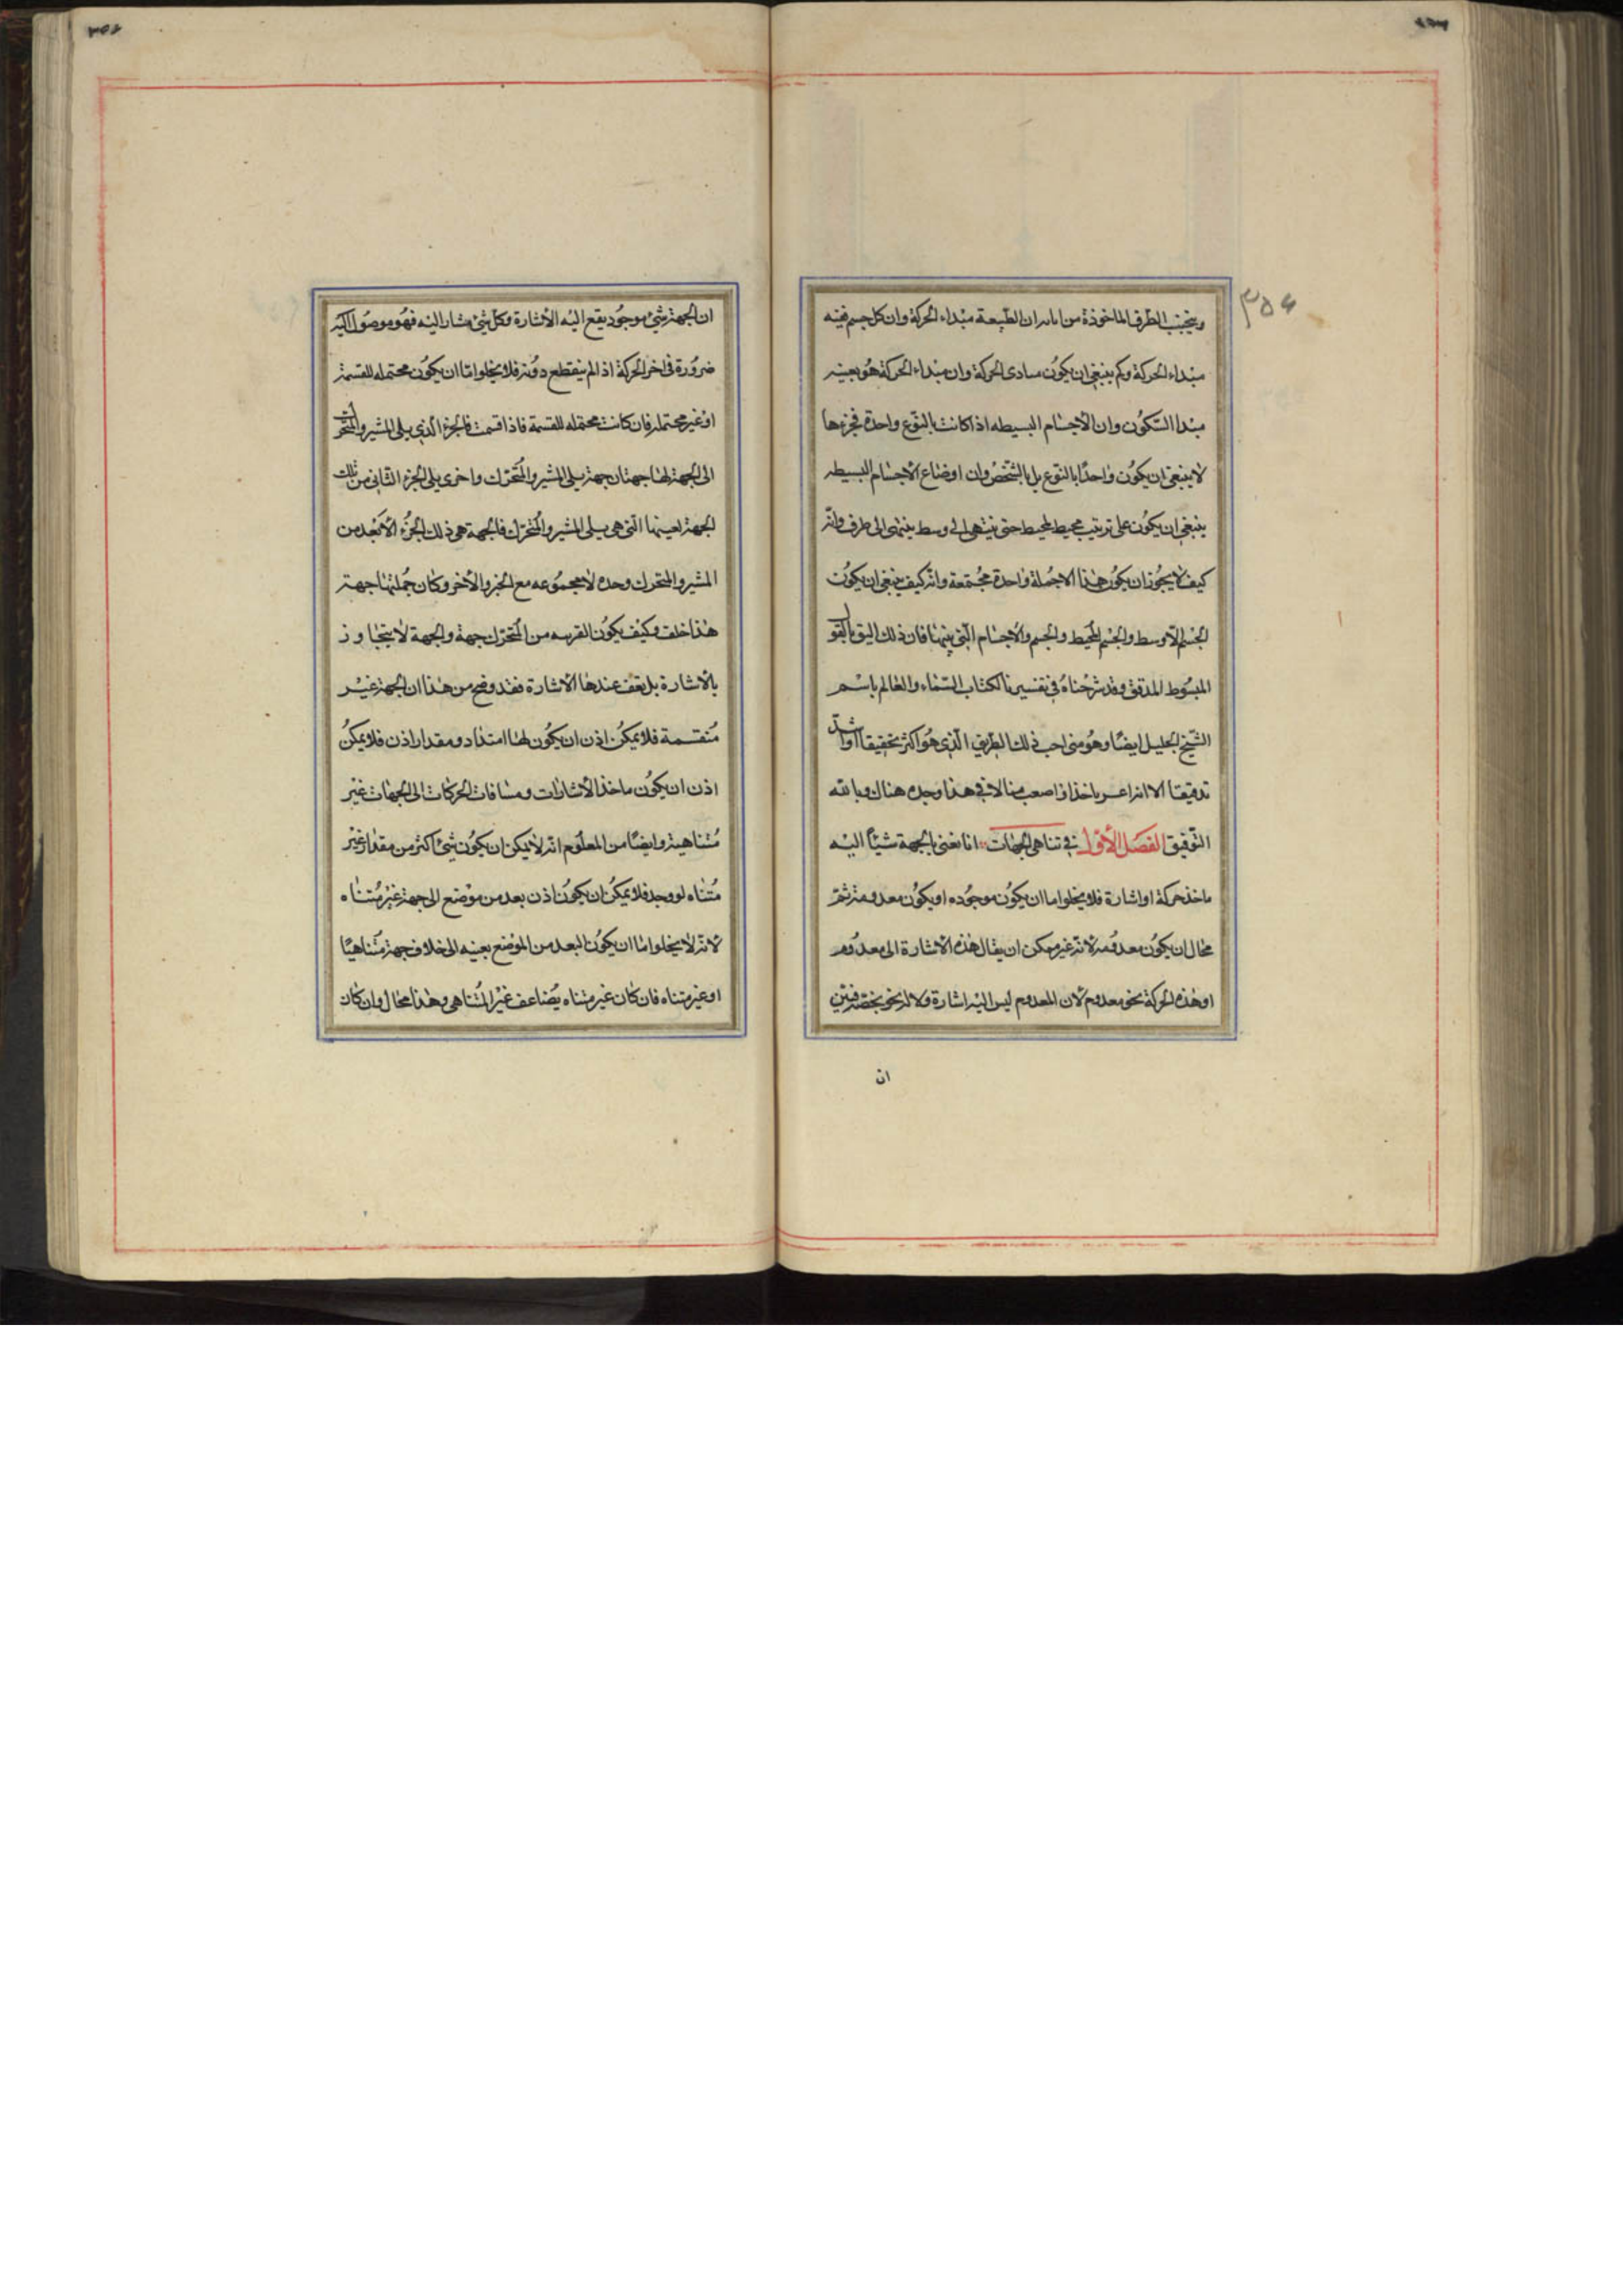 ٣٥٤
ويتجنب الطرق الماخوذة من ان الطبيعة مبداء الحركة وان كل جسم فيه
مبداء الحركة وكم ينبغي ان يكون مبادى الحركة وان مبداء الحركة هو بعينه
مبدا السكون وان الاجسام البسيطه اذا كانت بالنوع واحدة فجزءها
لا ينبغي ان يكون واحدًا بالنوع بل بالشخص وان اوضاع الاجسام البسيطه
ينبغي ان يكون على ترتيب محيط لمحيط حتى ينتهى الى وسط ينتهى الى طرف وانه
كيف لا يجوز ان يكون هذا الا جملة واحدة مجتمعة وانه كيف ينبغي ان يكون
الجسم الاوسط والجسم المحيط والجسم والاجسام التي بينهما فان ذلك اليق بالقو
المبسوط المدقق وقد شرحناه في تفسيرنا لكتاب السماء والعالم باسم
الشيخ الجليل ايضًا وهو منى احب ذلك الطريق الذي هو اكثر تحقيقا واشد
تدقيقا الا انه اعسر ماخذا واصعب منالا في هذا وجده هناك وبالله
التوفيق الفصل الأول في تناهي الجهات انا نعني بالجهة شيئًا اليه
ماخذ حركة او اشارة فلا يخلوا اما ان يكون موجوده او يكون معدومة ثم
محال ان يكون معدومه لانه غير ممكن ان يقال هذه الاشارة الى معدوم
او هذه الحركة نحو معدوم لان المعدوم ليس اليه اشارة ولا له نحو يختص فتبين
ان
ان الجهة شئ موجود يقع اليه الاشارة وكل شئ مشار اليه فهو موصول اليه
ضرورة في اخر الحركة اذا لم ينقطع دونه فلا يخلوا اما ان يكون محتمله للقسمة
او غير محتمله فان كانت محتمله للقسمة فاذا قسمت فالجزء الذي يلى المشير والمتحرك
الى الجهة لها جهتان جهة يلى المشير والمتحرك واخرى يلى الجزء الثاني من تلك
الجهة بعينها التي هي يلى المشير والمتحرك فالجهة هي ذلك الجزء الابعد من
المشير والمتحرك وحده لا مجموعه مع الجزو الاخر وكان جملتها جهة
هذا خلف وكيف يكون القريبه من المتحرك جهة والجهة لا يتجاوز
بالاشارة بل تقف عندها الاشارة فقد وضح من هذا ان الجهة غير
منقسمة فلا يمكن اذن ان يكون لها امتداد ومقدار اذن فلا يمكن
اذن ان يكون ماخذ الاشارات ومسافات الحركات الى الجهات غير
متناهية وايضًا من المعلوم انه لا يمكن ان يكون شئ اكثر من مقدار غير
متناه لو وجد فلا يمكن ان يكون اذن بعد من موضع الى جهة غير متناه
لانه لا يخلوا اما ان يكون البعد من الموضع بعينه الى خلاف جهة متناهيًا
او غير متناه فان كان غير متناه يضاعف غير المتناهي وهذا محال وان كان